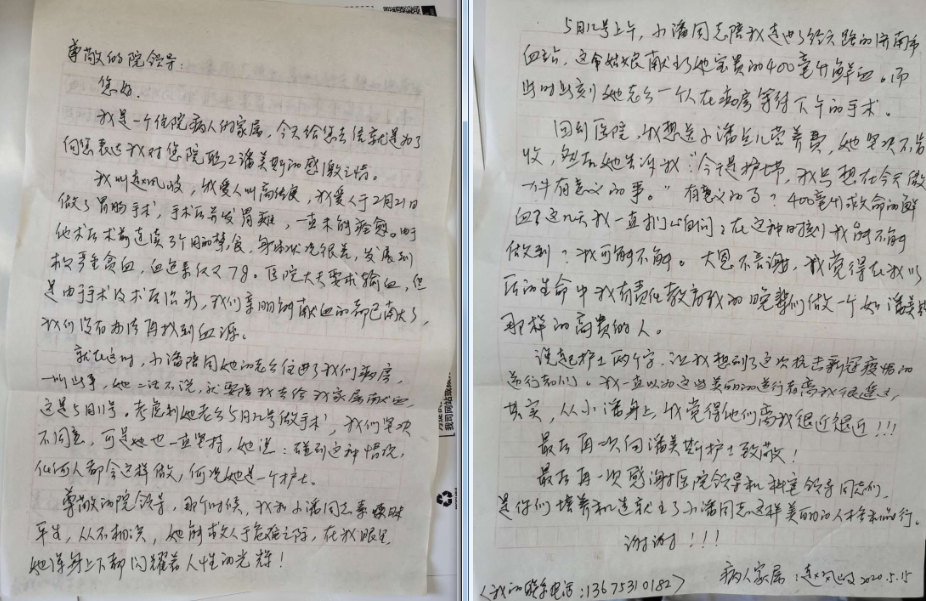 尊敬的院领导:
您好.
我是一个住院病人的家属,今天给您去信就是为了
向您表达我对您院职工潘美斯的感激之情。
我叫赵凤岐,我爱人叫高,我爱人于2月21日
做了胃肠手术,手术后并发胃瘫,一直未能痊愈。由于
他术后术前连续3个月的禁食,身体状况很差,发展到
枚严重贫血,血色素仅又78。医院大夫要求输血,但
是由于手术及术后治疗,我们亲朋能献血的都已献了,
我们没有办法再找到血源。
就在这时,小潘陪同她的老公住进了我们病房,
一听此事,她二话不说,就要陪我去给我家属献血,
这是5月11号,考虑到她老公5月12号做手术,我们坚决
不同意,可是她也一直坚持,她说:碰到这种情况,
任何人都会这样做,何况她是一个护士。
尊敬的院领导,那个时候,我和小潘同志素昧
平生,从不相识,她能救人于危难之际,在我眼里,
她浑身上下都闪耀着人性的光辉!
5月12号上午,小潘同志陪我进了经六路的济南市
血站,这个姑娘献出了她宝贵的400毫升鲜血。而
此时此刻她老公一个人在病房等待下午的手术。
回到医院,我想送小潘点儿营养费,她坚决不肯
收,然后她告诉我:“今天是护士节,我只想在今天做
一件有意义的事。”有意义的事?400毫升救命的鲜
血?这几天我一直扪心自问:在这种时刻我能不能
做到?我可能不能。大恩不言谢,我觉得在我以
后的生命中我有责任教育我的晚辈们做一个如潘美斯
那样的高贵的人。
说起护士两个字,让我想到了这次抗击新冠疫情的
逆行者们。我一直以为这些美丽的逆行者离我很遥远,
其实,从小潘身上,我觉得他们离我很近很近!!!
最后再次向潘美斯护士致敬!
最后再一次感谢医院领导和科室领导同志们,
是你们培养和造就出了小潘同志这样美丽的人格和品行。
谢谢!!!
病人家属:赵凤岐 2020.5.15
(我的联系电话:13675310182)